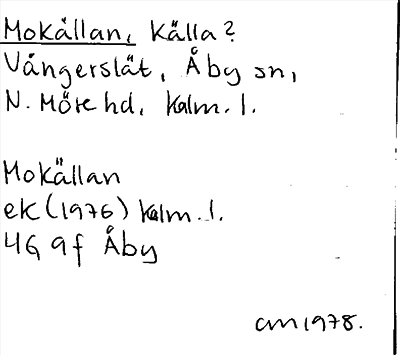 Mokällan, Källa?
Vångerslät, Åby sn,
N. Möre hd, Kalm. l.
Mokällan
ek (1976) Kalm. l.
4G 9f Åby
CM 1978.